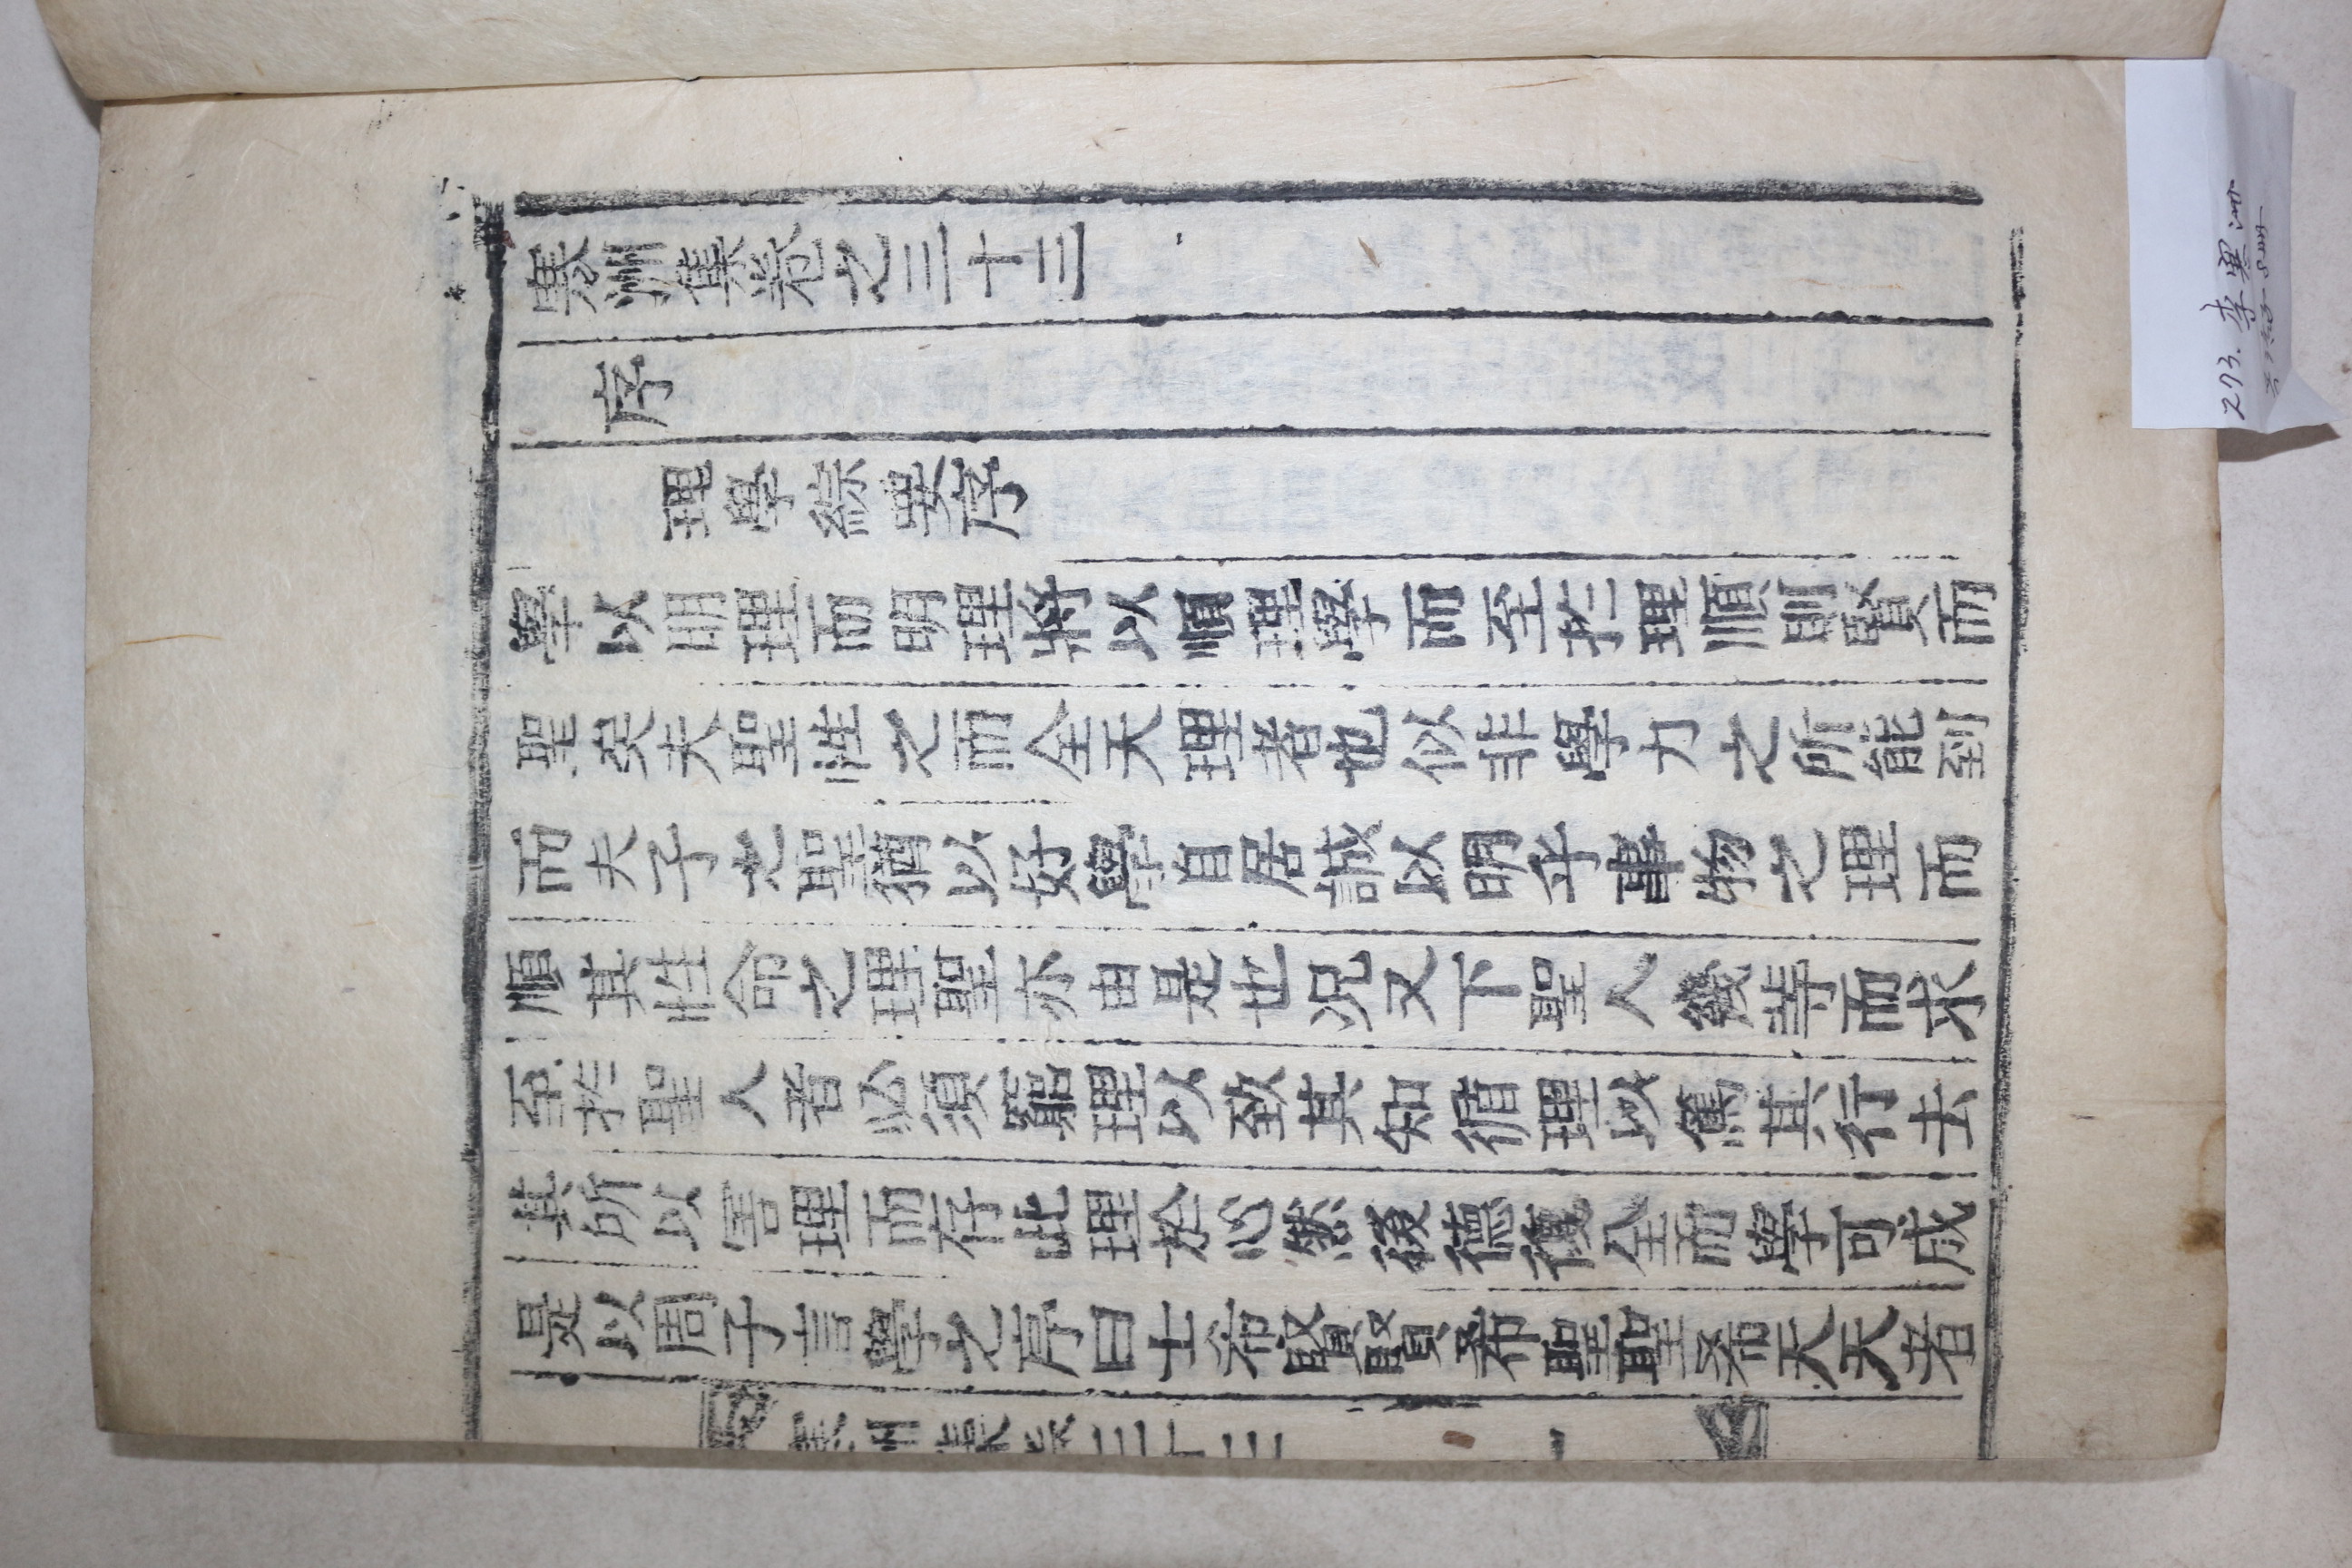 寒洲集卷之三十三
序
理學綜要序
學以明理而明理將以順理學而至於理順則賢而
聖矣夫聖性之而全天理者也似非學力之所能到
而夫子之聖猶以好學自居誠以明乎事物之理而
順其性命之理聖亦由是也况又下聖人幾等而求
至於聖人者必須窮理以致其知循理以篤其行去
其所以害理而存此理於心然後德復全而學可成
是以周子言學之序曰士希賢賢希聖聖希天天者
寒洲集卷三十三 一
273. 李寒洲
8冊